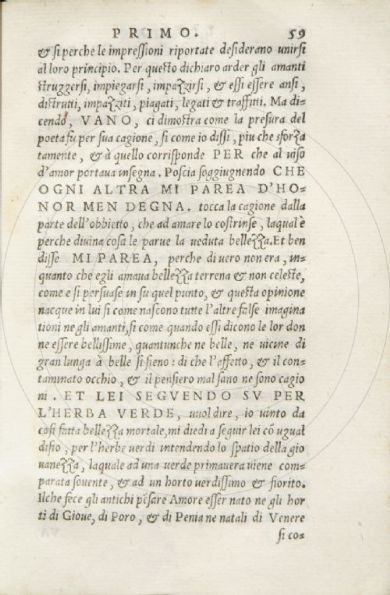 PRIMO. 59
& si perche le impressioni riportate desiderano unirsi
al loro principio. Per questo dichiaro arder gli amanti
struggersi, impiegarsi, impazzirsi, & essi essere ansi,
distrutti, impazziti, piagati, legati & traffitti. Ma di-
cendo, VANO, ci dimostra come la presura del
poeta fu per sua cagione, si come io dissi, piu che sforza
tamente, & à quello corrisponde PER che al uiso
d'amor portaua insegna. Poscia soggiugnendo CHE
OGNI ALTRA MI PAREA D'HO-
NOR MEN DEGNA. tocca la cagione dalla
parte dell'obbietto, che ad amare lo costrinse, laqual è
perche diuina cosa le parue la ueduta bellezza. Et ben
disse MI PAREA, perche di uero non era, in-
quanto che egli amaua bellezza terrena & non celeste,
come e si persuase in su quel punto, & questa opinione
nacque in lui si come nascono tutte l'altre false imagina
tioni ne gli amanti, si come quando essi dicono le lor don
ne essere bellissime, quantunche ne belle, ne uicine di
gran lunga à belle si sieno: di che l'affetto, & il con-
taminato occhio, & il pensiero mal sano ne sono cagio
ni. ET LEI SEGVENDO SV PER
L'HERBA VERDE, uuol dire, io uinto da
cosi fatta bellezza mortale, mi diedi a seguir lei cō ugual
disio, per l'herbe uerdi intendendo lo spatio della gio
uanezza, laquale ad una uerde primauera uiene com-
parata souente, & ad un horto uerdissimo & fiorito.
Ilche fece gli antichi pēsare Amore esser nato ne gli hor
ti di Gioue, di Poro, & di Penia ne natali di Venere
si co-